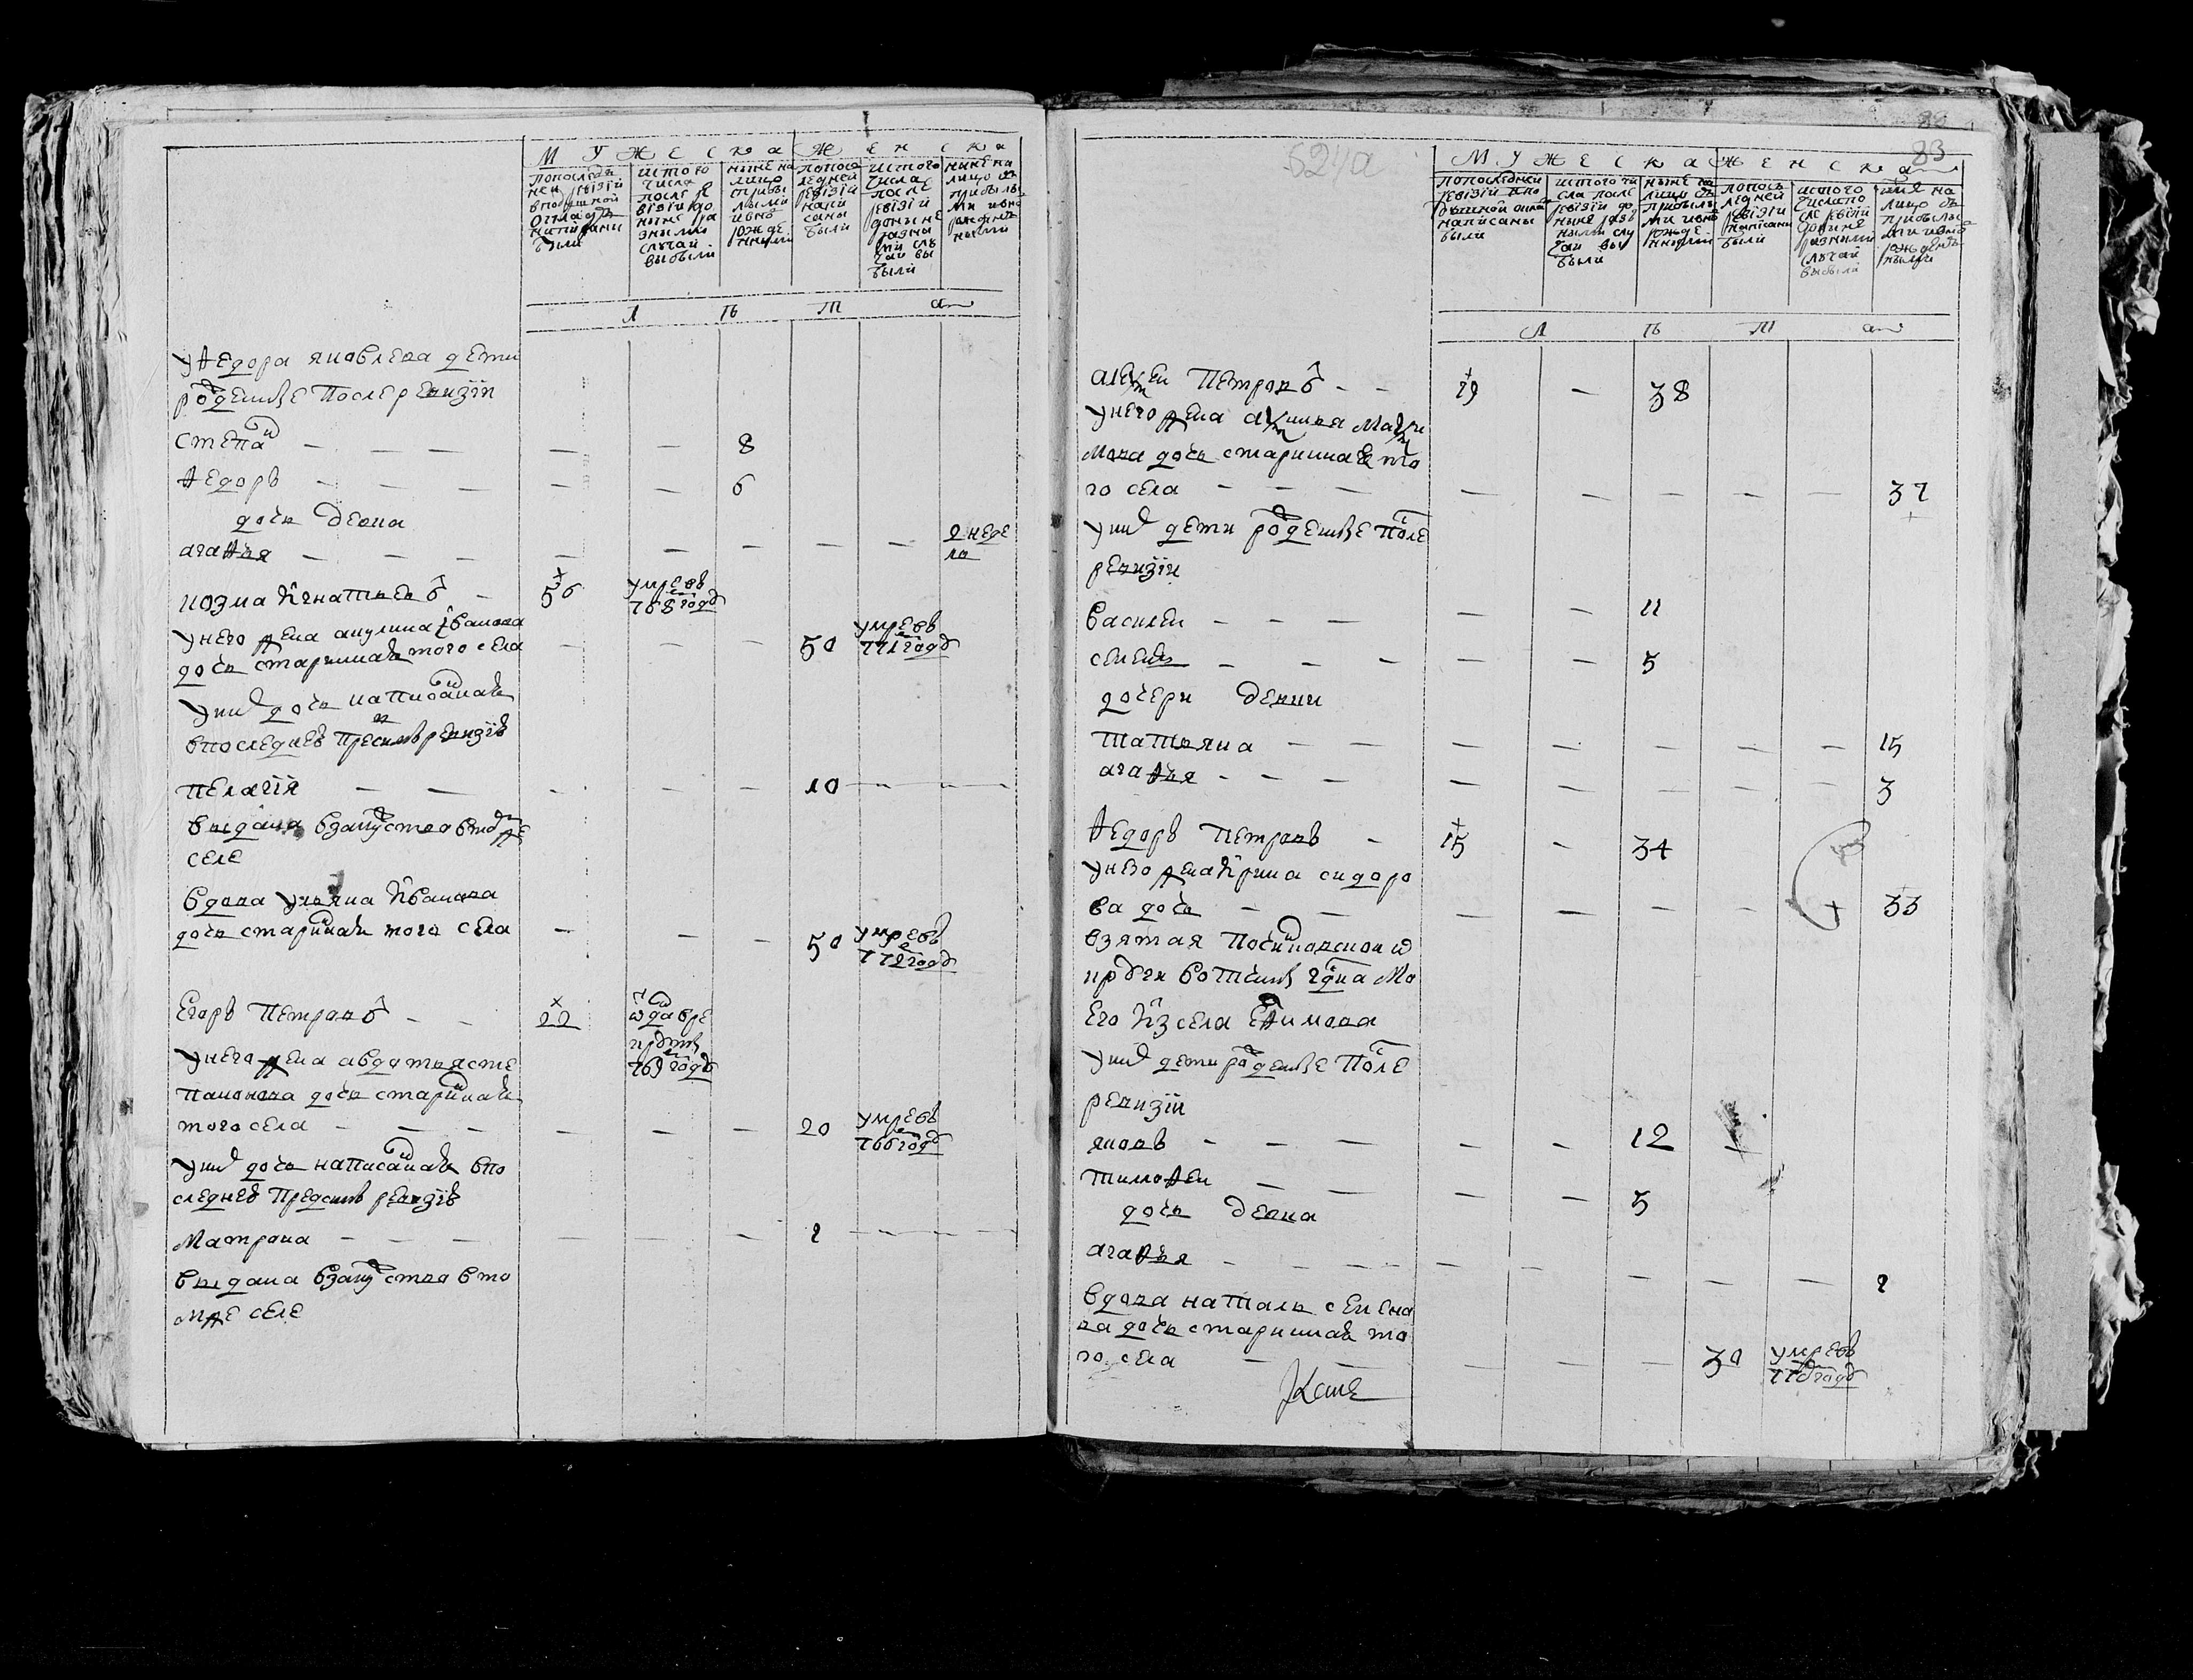 МУЖЕСКА ЖЕНСКА
попослѣд
ней ревізїи
вподушной
окладъ
написаны
были
истого
числа
после ре
візіи до
ныне ра
зными
случаи
выбыли
ныне на
лицо
спривы
лыми
ивно
рожде
нными
попосл
ледней
ревізїи
напи
саны
были
истого
числа
после
ревізїи
доныне
разны
ми слу
чаи вы
были
ныне на
лицо съ
прибылы
ми ивно
рожден
ными
Л Ѣ Т а
у Ѳедора яковлева дети
рожденые после ревизїи
степан — — — — — 8
Ѳедоръ — — — — — 6
дочь девка
агаѳья — — — — — — — — 2 неде
ли
козма игнатьев — 56 умре въ
768 годѣ
у него жена акулина ивановa
дочь старинная того села — — — 50 умре въ
771 годѣ
у них дочь написанная
впоследней пред симъ ревизїи
пелагїя — — — — — 10 — —
выдана взамужство втом же
селе
вдова ульяна ивановa
дочь старинная того села — — — 50 умре въ
772 годѣ
Егоръ Петров — — 22 отдан в ре
круты
769 годѣ
у него жена авдотья сте
пановa дочь старинная
того села — — — — — — 20 умре въ
766 годѣ
у них дочь написанная впо
следней пред симъ ревизїи
Матрона — — — — — — 2 — —
выдана взамужство вто
м же селе
83
МУЖЕСКА ЖЕНСКА
попоследней
ревізїи впо
душной окла
написаны
были
истого чи
сла после
ревізїи до
ныне раз
ными слу
чаи вы
были
ныне на
лицо съ
прибылы
ми ивно
рожде
нными
попосл
ледней
ревізїи
написаны
были
истого
числа по
сле ревізїи
доныне
разными
случаи
выбыли
ныне на
лицо съ
прибылы
ми ивно
рожден
ными
Л Ѣ Т а
алексеи Петров — — 19 — 38
у него жена аксинья Макси
мова дочь старинная то
го села — — — — — — — — 37
у них дети рожденые после
ревизїи
Василеи — — — — — 11
семенъ — — — — — 5
дочери девки
татьяна — — — — — — — 15
агаѳья — — — — — — — — 3
Ѳедоръ Петровъ — 15 — 34
у него жена ирина сидоро
ва дочь — — — — — — 33
взятая
Его из села Еѳимова
у них дети рожденые после
ревизїи
яковъ — — — — — 12 —
тимоѳеи — — — — 5
дочь девка
агаѳья — — — — — — — — 2
вдова наталья семено
ва дочь старинная то
го села — — — — — 30 умре въ
годѣ